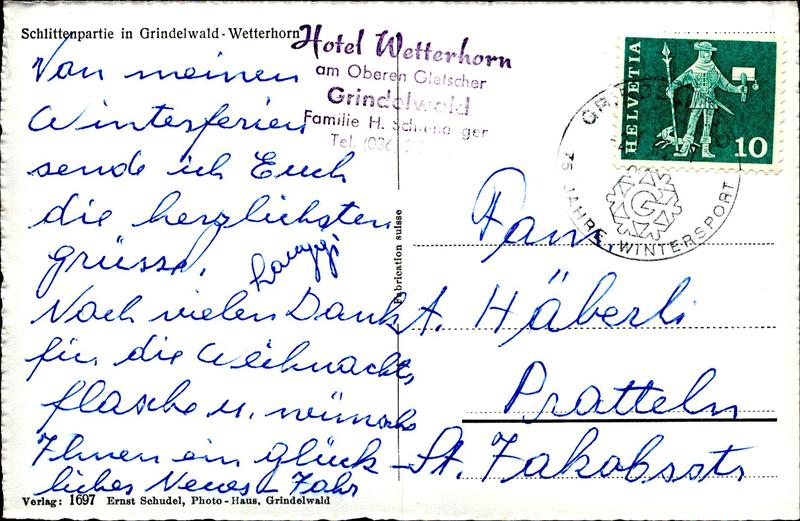 Schlittenpartie in Grindelwald-Wetterhorn
Hotel Wetterhorn
am Oberen Gletscher
Grindelwald
Familie H.
Tel.
HELVETIA
10
75 JAHRE WINTERSPORT
G
Von meinen
Winterferien
sende ich Euch
die herzlichsten
Grüsse.
Noch vielen Dank
für die Weihnachts
flasche u. wünsche
Ihnen ein glück-
liches Neues Jahr
Fam.
A. Häberli
Pratteln
St. Jakobsstr
Fabrication suisse
Verlag: 1697 Ernst Schudel, Photo-Haus, Grindelwald